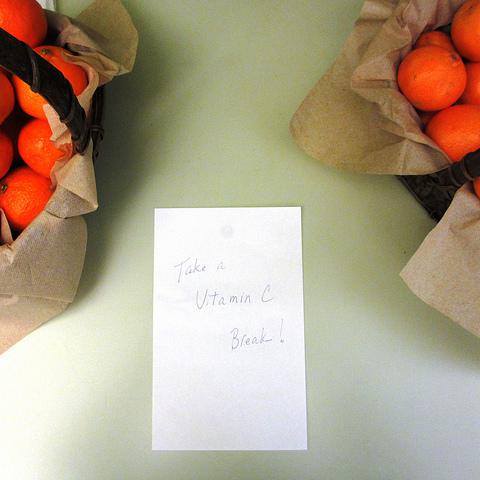 Take a
Vitamin C
Break!